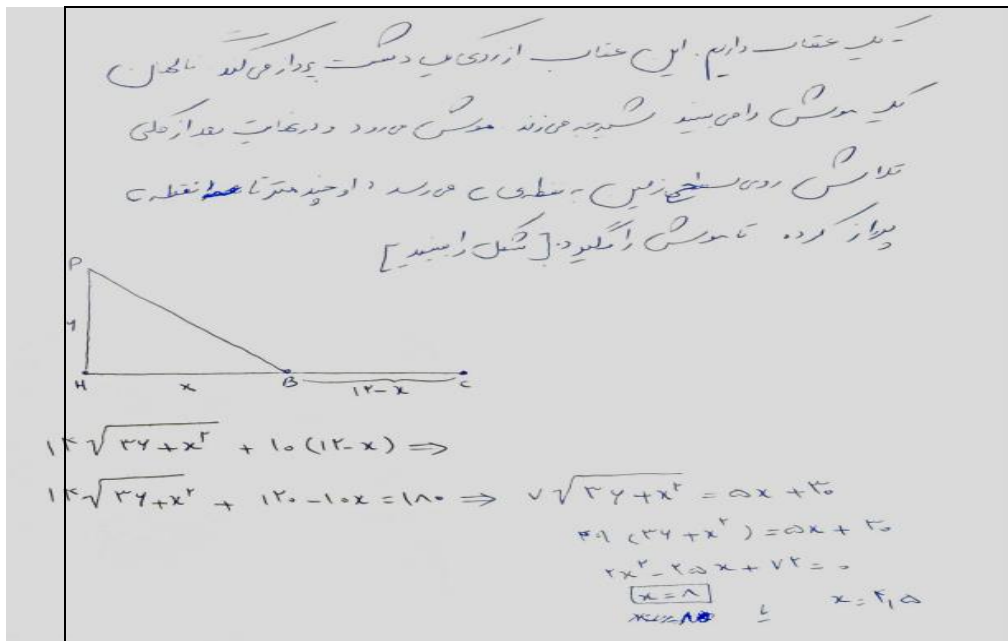 - یک عقاب داریم. این عقاب از روی یک دشت پرواز می‌کند ناگهان
یک موش را می‌بیند شیرجه می‌زند موش می‌رود و در نهایت بعد از کلی
تلاش روی سطح زمین به نقطه‌ی c می‌رسد؛ او چند متر تا نقطه c
پرواز کرده تا موش را بگیرد؟ [شکل را ببینید]
P
۶
H x B ۱۲-x C
۱۴√۳۶+x² + ۱۰(۱۲-x) ⇒
۱۴√۳۶+x² + ۱۲۰-۱۰x = ۱۸۰ ⇒ ۷√۳۶+x² = ۵x+۳۰
۴۹(۳۶+x²) = ۵x+۳۰
۲x²-۲۵x+۷۲=۰
x=۸ یا x=۴,۵